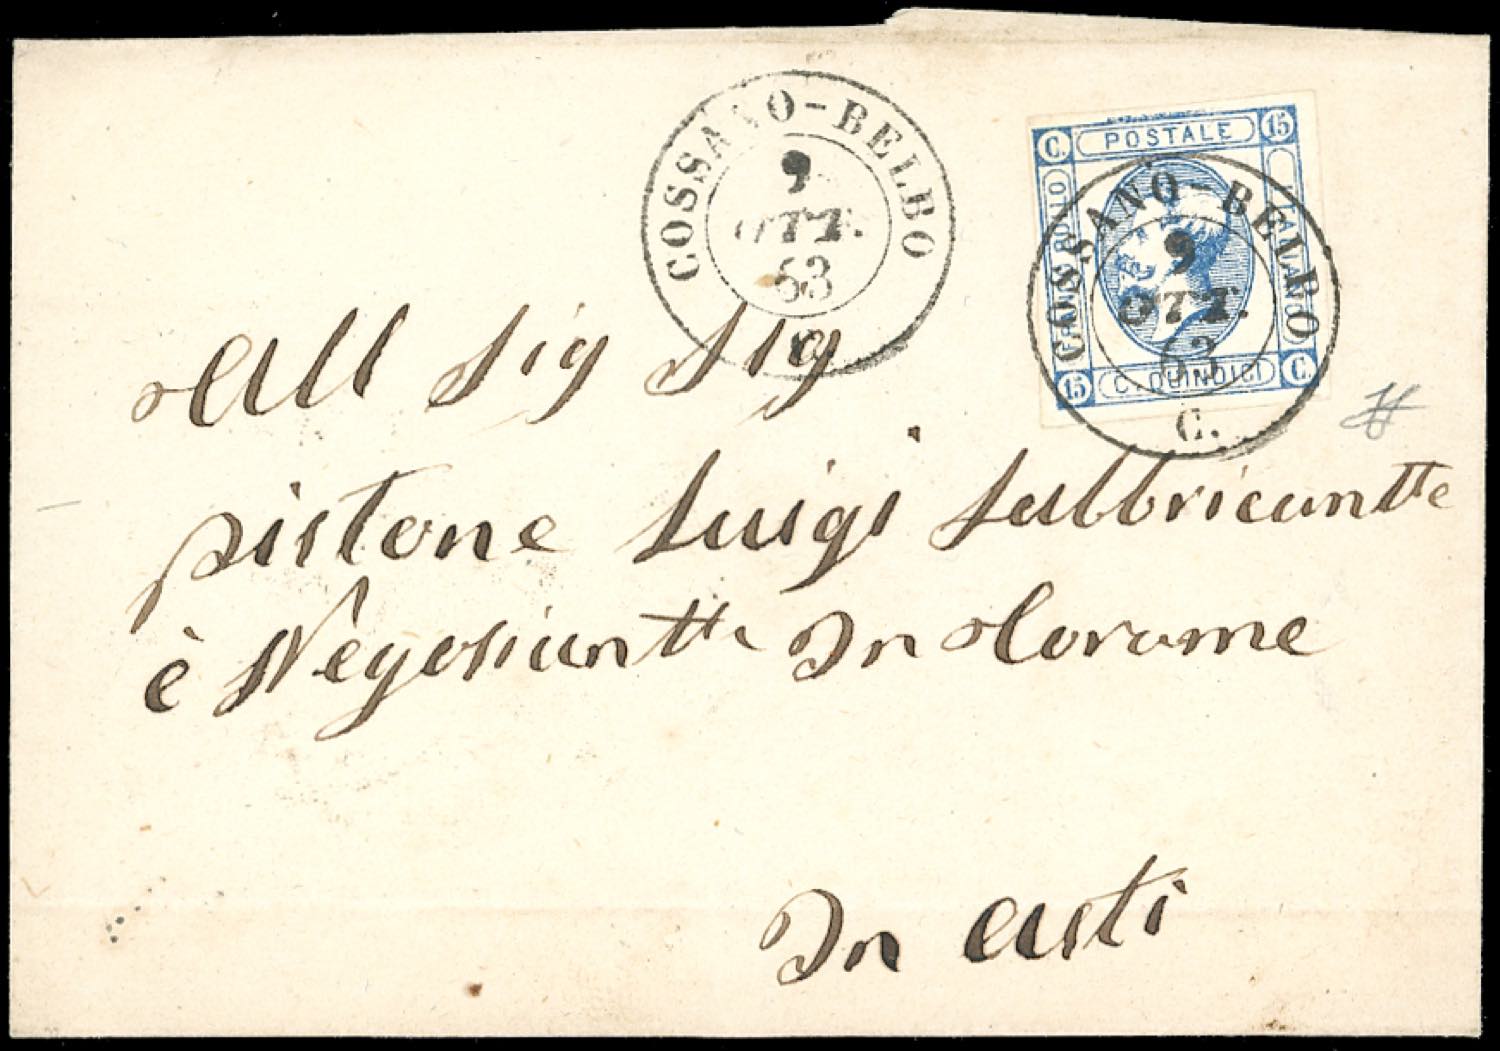 COSSANO-BELBO
9
OTT.
63
C.
POSTALE
C. 15
FRANCO BOLLO
ITALIANO
C. QUINDICI
15 C.
COSSANO-BELBO
9
OTT.
63
C.
All Sig Sig
pistone Luigi fabbricantte
è Negosiantte In Corame
In Asti